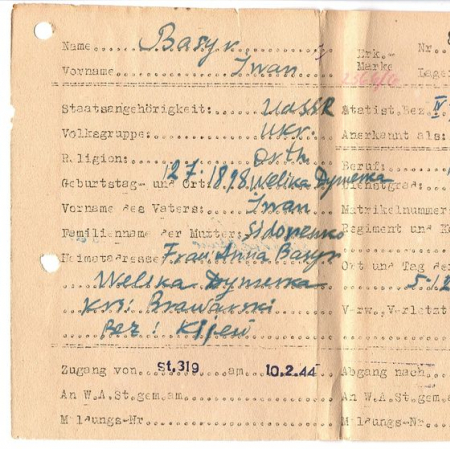 Name Basyv Erk.- Nr.
Vorname Iwan Marke Lage
Staatsangehörigkeit: UdSSR Statist.Bez. IV
Volksgruppe: Ukr. Anerkannt als:
Religion: orth. Beruf:
Geburtstag- und Ort: 12.7.1898 Welika Dymerka Dienstgrad:
Vorname des Vaters: Iwan Matrikelnummer
Familienname der Mutter: Sidorenko Regiment und
Heimatadresse: Frau: Anna
Welika Dymerka Ort und Tag der
Krs: Brawarski Verw. Verletzt
Bez: Kijew
Zugang von St.319 am 10.2.44 Abgang nach
An W.A.St.gem.am An W.A.St.gem.
Mldungs-Nr. Mldungs-Nr.